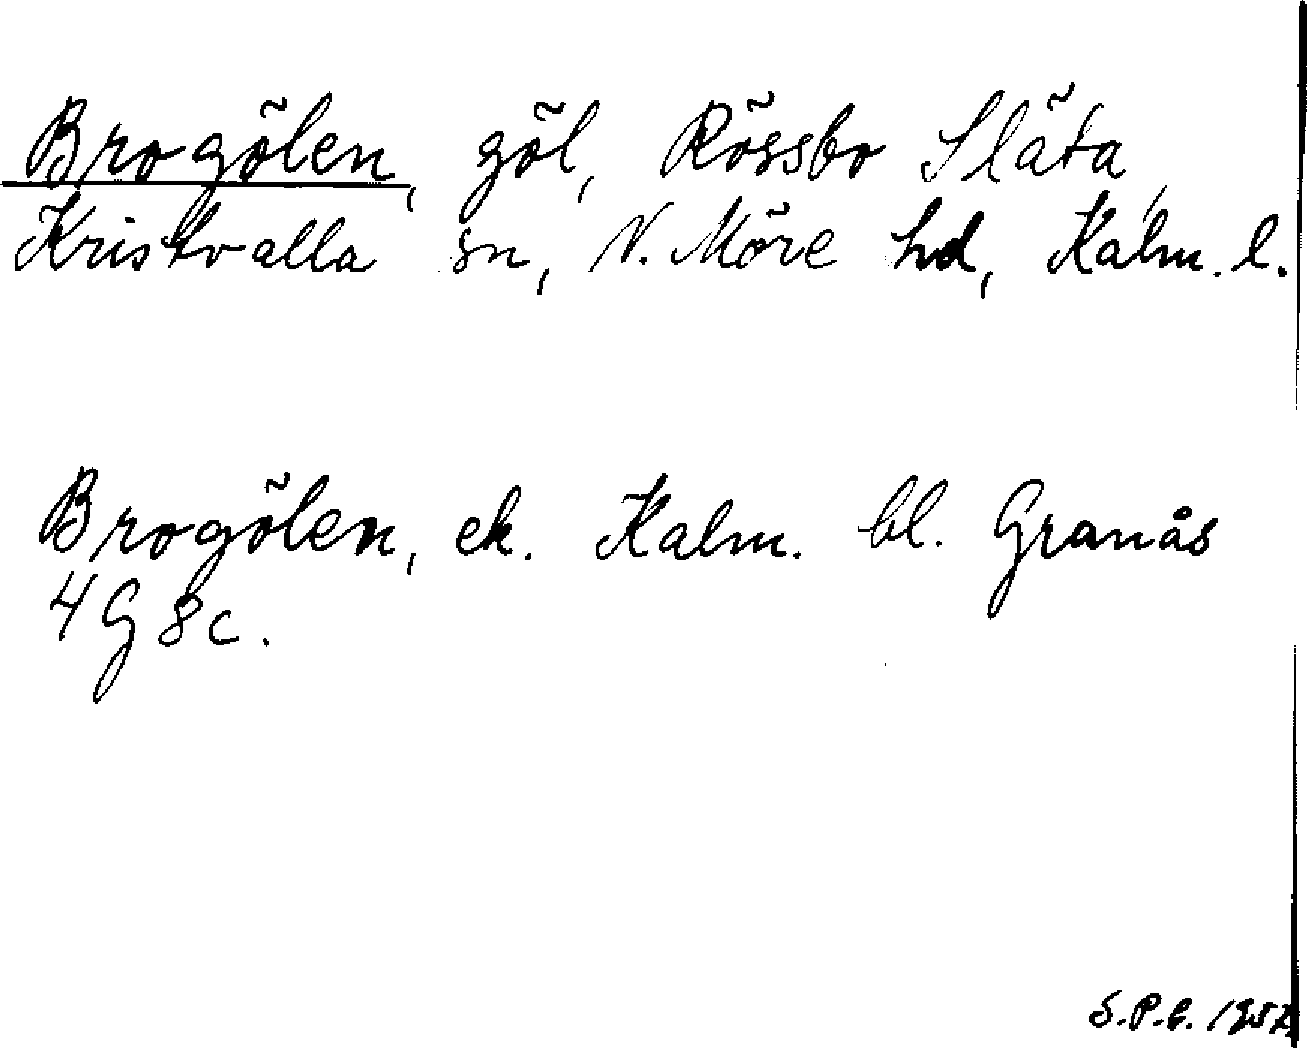 Brogölen, göl, Rössbo Släta,
Kristvalla sn, N. Möre hd, Kalm. l.
Brogölen, ek. Kalm. bl. Granås
4 G 8 c.
S.P.E.